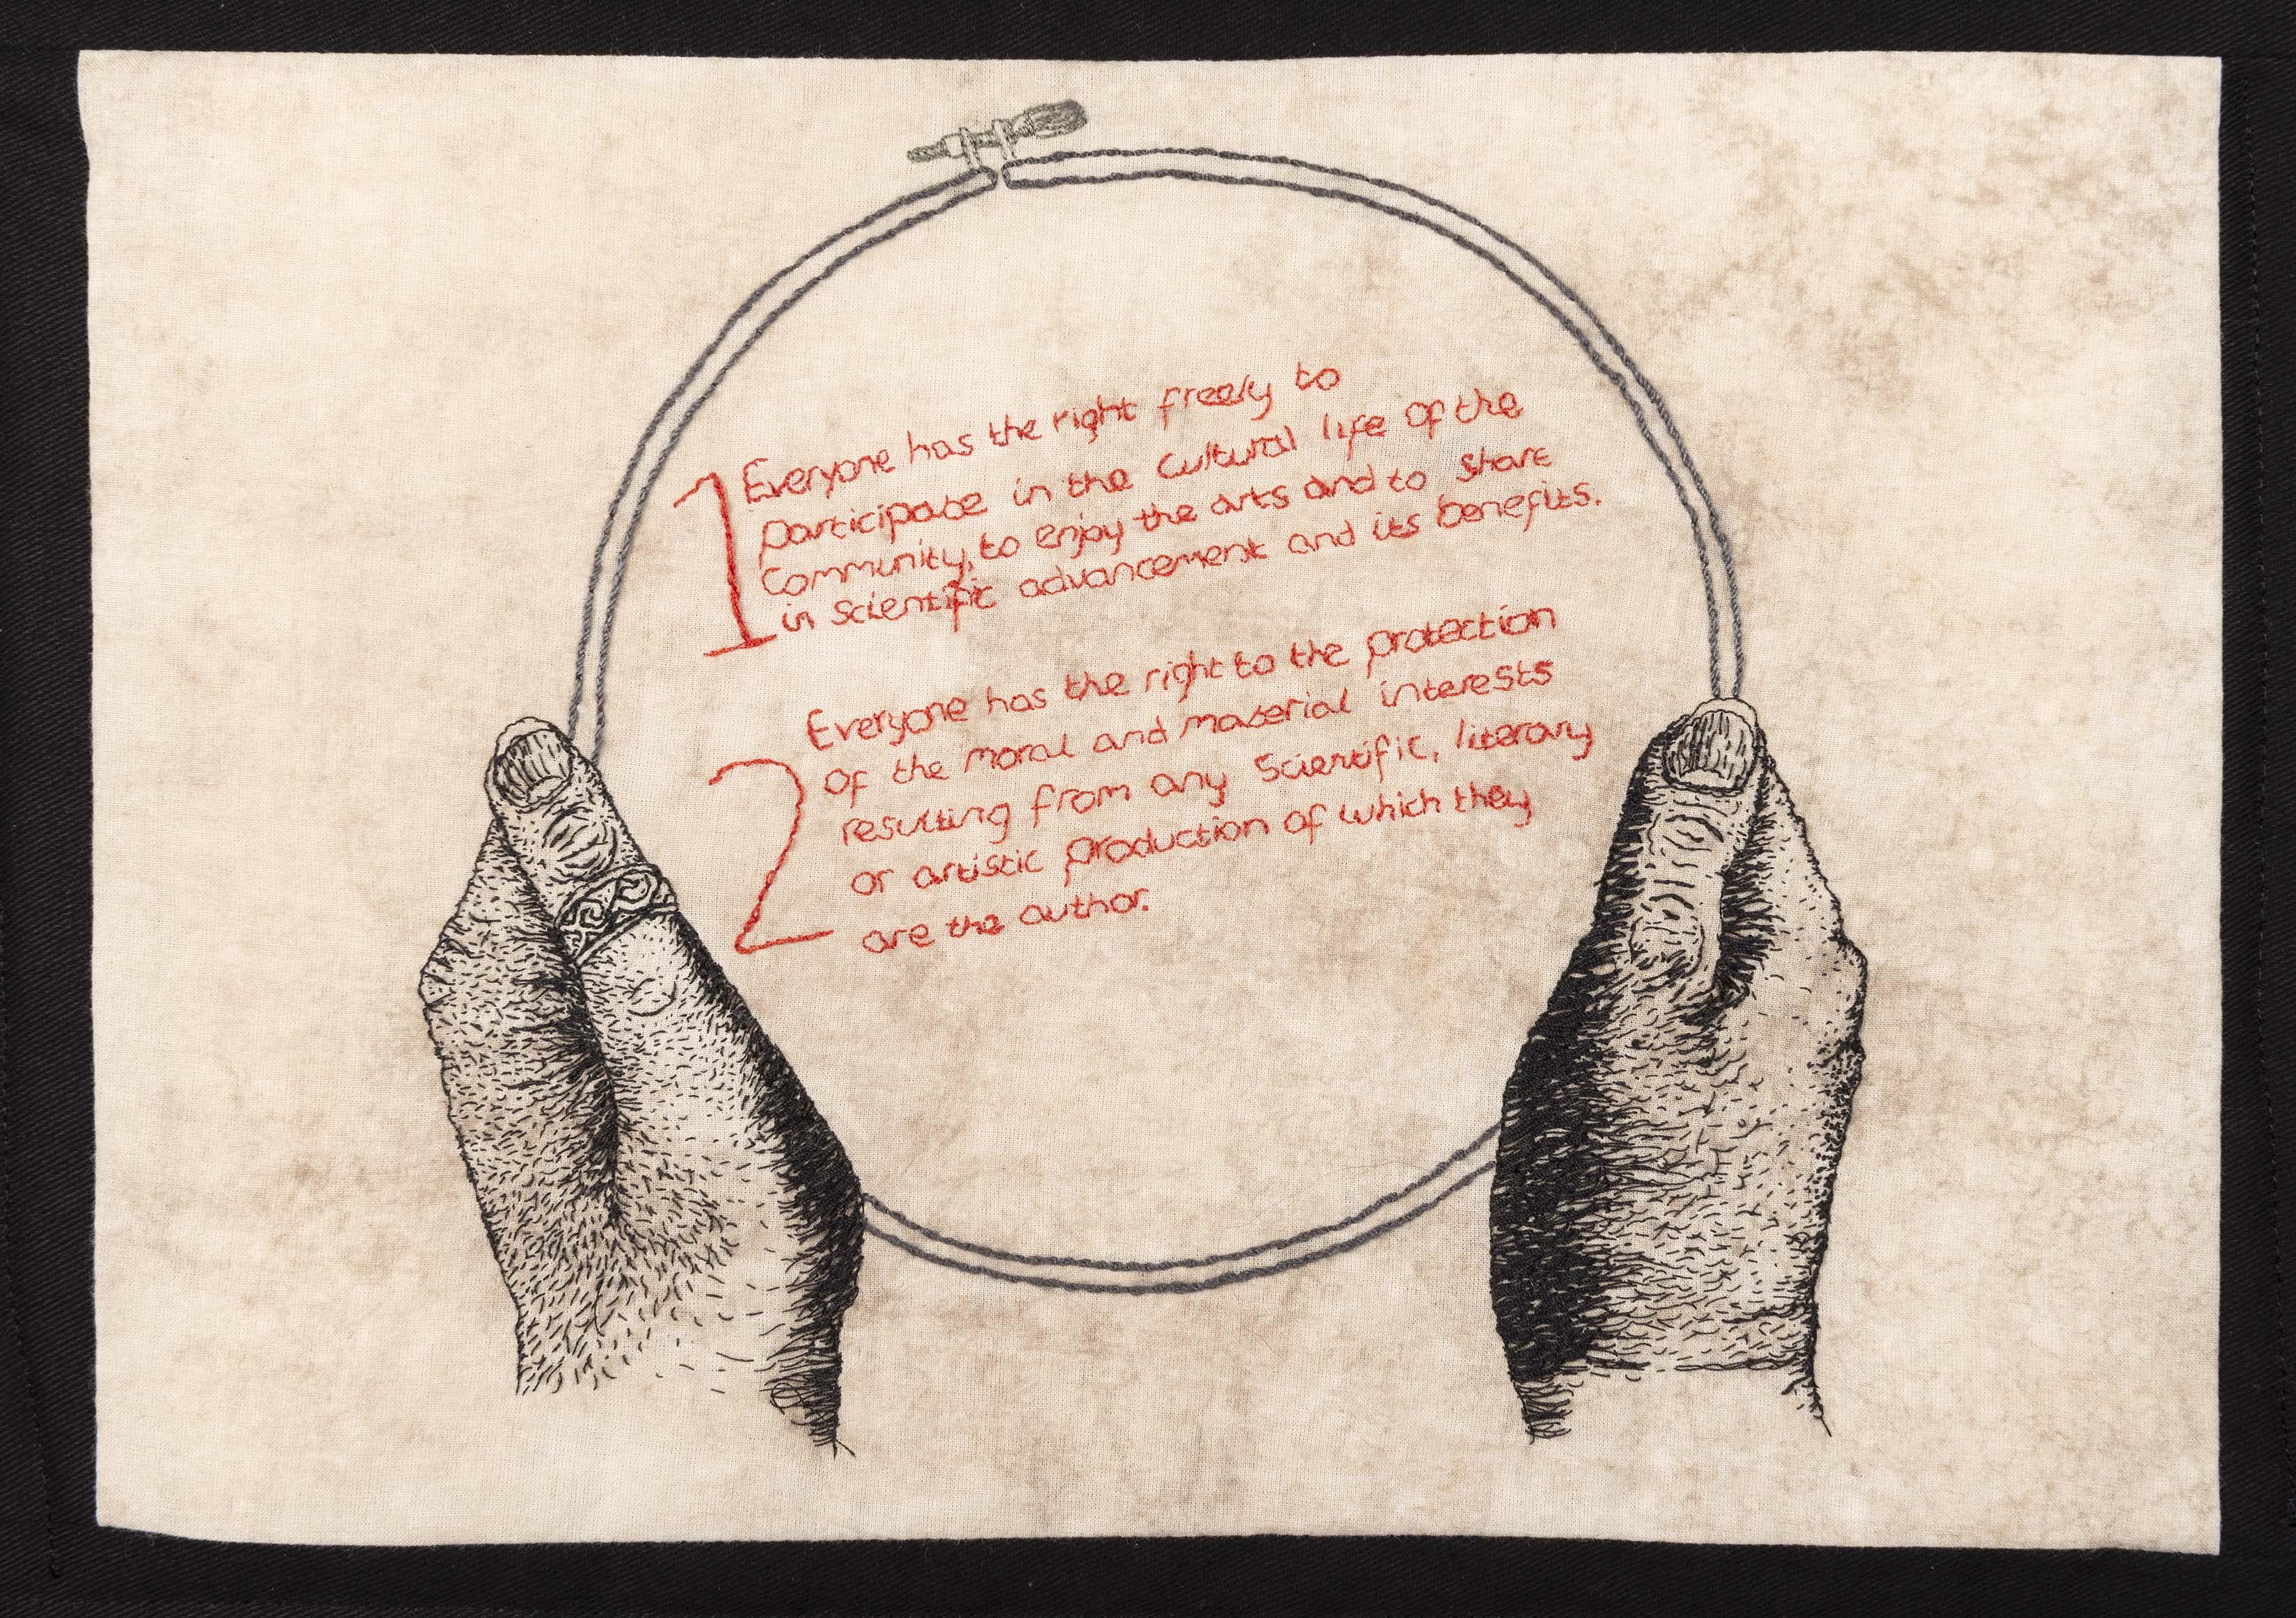 1 Everyone has the right freely to
participate in the cultural life of the
Community, to enjoy the arts and to share
in scientific advancement and its benefits.
2 Everyone has the right to the protection
of the moral and material interests
resulting from any Scientific, literary
or artistic production of which they
are the author.